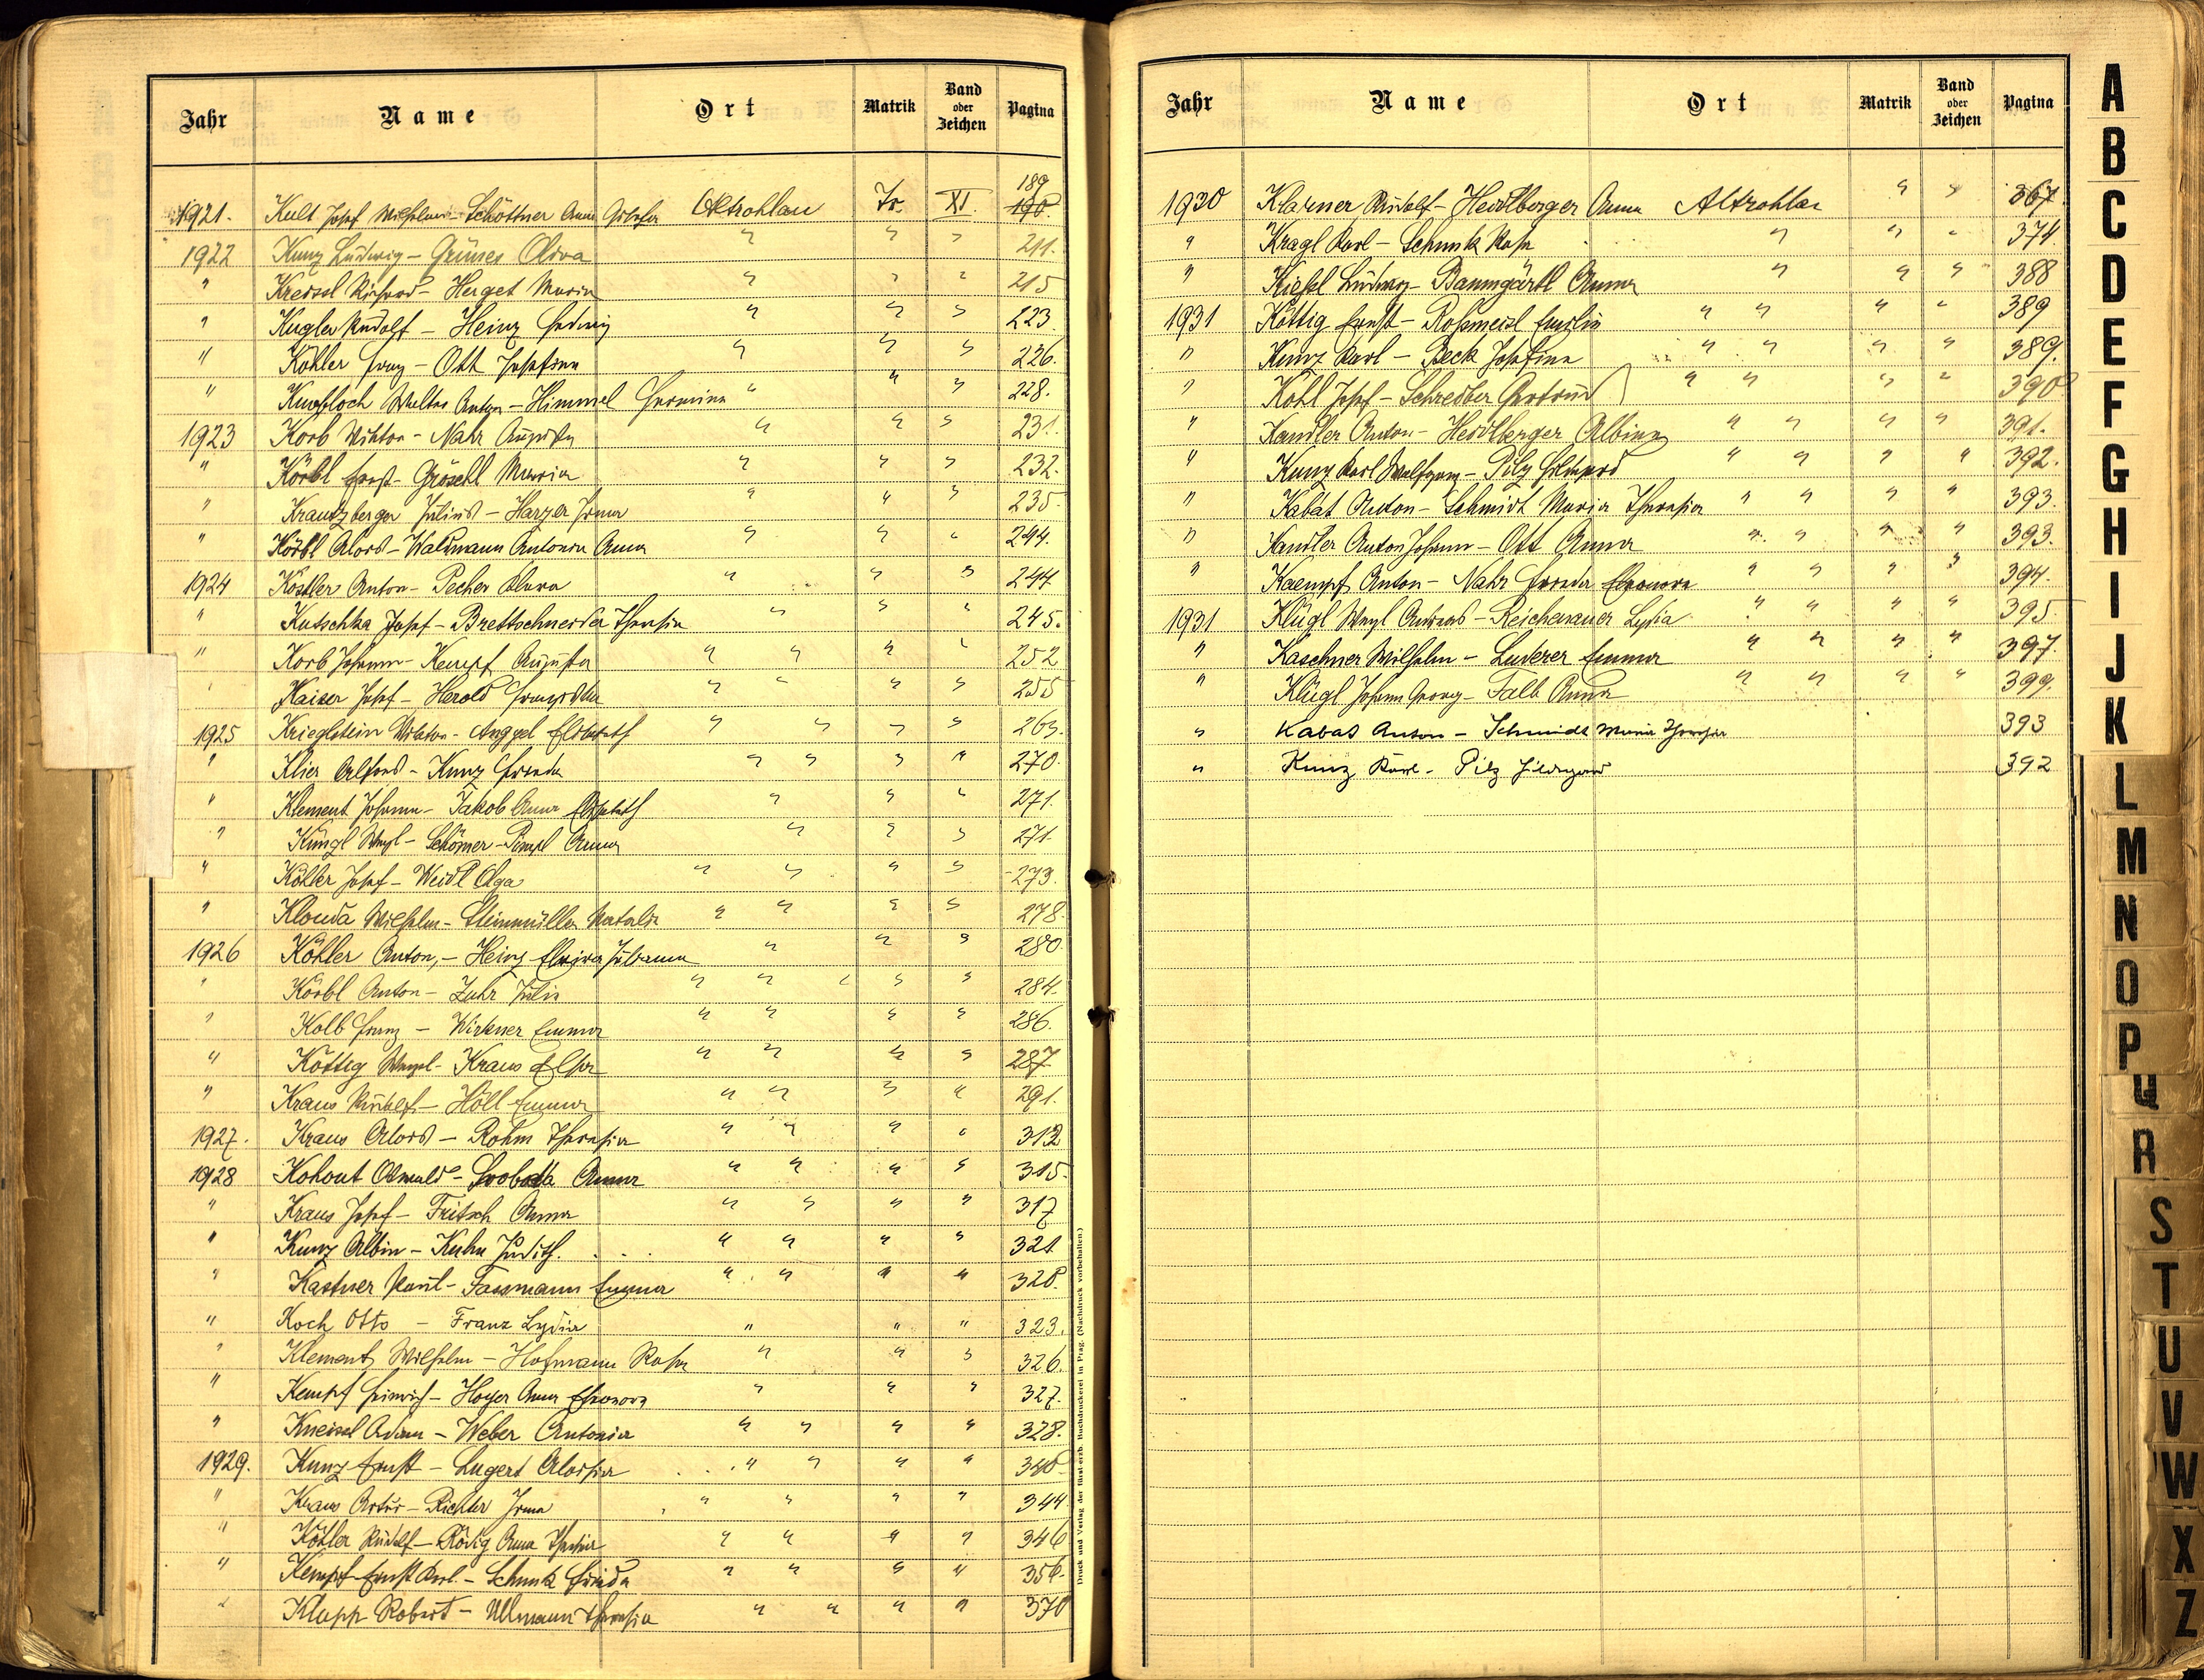 Jahr Name Ort Matrik Band oder Zeichen Pagina
189
1921. Kult Josef Wilhelm - Schöttner Anna Altrohlau Tr. XI. 190.
1922 Kunz Ludwig - Grünes Oliva " " " 211.
" Kreissl Richard - Herget Maria " " " 215
" Kugler Rudolf - Heinz Hedwig " " " 223
" Köhler Franz - Ott Josefina " " " 226.
" Knobloch Walter Anton - Himmel Hermine " " " 228.
1923 Korb Viktor - Nahr Augusta " " " 231.
" Körbl Ernst - Gröschl Maria " " " 232.
" Krautzberger Julius - Harzer Irma " " " 235
" Körbl Alois - Waldmann Antonia Anna " " " 244.
1924 Köstler Anton - Pecher Klara " " " 244
" Kutschka Josef - Brettschneider Theresia " " " 245.
" Korb Johann - Kempf Augusta " " " " 252
" Kaiser Josef - Herold Franziska " " " " 255
1925 Krieglstein Viktor - Anggel Elisabeth " " " " 263.
" Klier Alfred - Kunz Frieda " " " " 270.
" Klement Johann - Jakob Anna Elisabeth " " " 271.
" Küngl Wenzl - Schömer - Pimpl Anna " " " 271.
" Köhler Josef - Weidl Olga " " " " 273.
" Klouda Wilhelm - Steinmüller Natalie " " " " 278.
1926 Köhler Anton, - Heinz Elvira Julianna " " " 280.
" Körbl Anton - Zuhr Julie " " " " 284.
" Kolb Franz - Wirkner Emma " " " " 286.
" Köttig Wenzel - Kraus Elsa " " " " 287
" Kraus Rudolf - Höll Emma " " " " 291.
1927. Kraus Alois - Rohm Theresia " " " " 312
1928 Kohout Oswald - Svoboda Anna " " " " 315.
" Kraus Josef - Fritsch Anna " " " " 317
" Kunz Albin - Kuhn Judith. " " " " 321
" Kastner Paul - Fassmann Emma " " " " 320.
" Koch Otto - Franz Lydia " " " 323.
" Klement Wilhelm - Hofmann Rosa " " " 326.
" Kempf Heinrich - Hoyer Anna Eleonora " " " 327.
" Kneissl Adam - Weber Antonia " " " " 328.
1929. Kunz Ernst - Lugert Aloisia " " " " 340
" Kraus Artur - Richter Irma " " " " 344
" Köhler Rudolf - Rödig Anna Theresia " " " " 346
" Kempf Ernst Karl - Schunk Frieda " " " " 356.
" Klapp Robert - Ullmann Theresia " " " " 370
Druck und Verlag der fürst-erzb. Buchdruckerei in Prag. (Nachdruck vorbehalten.)
Jahr Name Ort Matrik Band oder Zeichen Pagina
1930 Klarner Rudolf - Heidlberger Anna Altrohlau " " 367.
" Kragl Karl - Schunk Rosa " " " 374.
" Kiesel Ludwig - Baumgärtl Anna " " " 388
1931 Köttig Ernst - Rossmeisl Emilie " " " " 389
" Kunz Karl - Beck Josefina " " " " 389.
" Kohl Josef - Schreiber Gertrud " " " " 390
" Kandler Anton - Heidlberger Albina " " " " 391.
" Kunz Karl Wolfgang - Pilz Hildegard " " " " 392.
" Kabat Anton - Schmidt Maria Theresia " " " " 393.
" Kandler Anton Johann - Ott Anna " " " " 393.
" Kaempf Anton - Nahr Frieda Eleonora " " " " 394.
1931 Klügl Wenzl Andreas - Reichenauer Lydia " " " " 395
" Kaschner Wilhelm - Luderer Emma " " " " 397.
" Klügl Johann Georg - Falb Anna " " " " 399.
" Kabas Anton - Schmidt Maria Theresia 393
" Kunz Karl - Pilz Hildegard 392
A
B
C
D
E
F
G
H
I
J
K
L
M
N
O
P
Q
R
S
T
U
V
W
X
Z